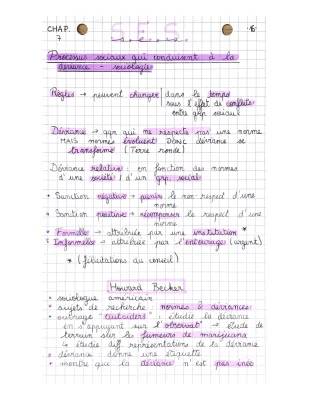 CHAP. 7
SES
Processus sociaux qui conduisent à la
déviance - sociologie
Règles → peuvent changer dans le temps
sous l'effet de conflits
entre grp sociaux
Déviance → qqn qui ne respecte pas une norme
MAIS normes évoluent DONC déviance se
transforme (Terre ronde)
Déviance relative : en fonction des normes
d'une société / d'un grp social
• Sanction négative → punir le non respect d'une
norme
• Sanction positive → récompenser le respect d'une
norme
• Formelle → attribuée par une institution *
• Informelle → attribuée par l'entourage (argent)
* (félicitations au conseil)
Howard Becker
• sociologue américain
• sujets de recherche normes & déviances
• ouvrage "Outsiders" : étudie la déviance
en s'appuyant sur l'observat° → étude de
terrain sur les fumeurs de marijuana
↳ étudie diff représentations de la déviance
• déviance donne une étiquette
• montre que la déviance n'est pas innée